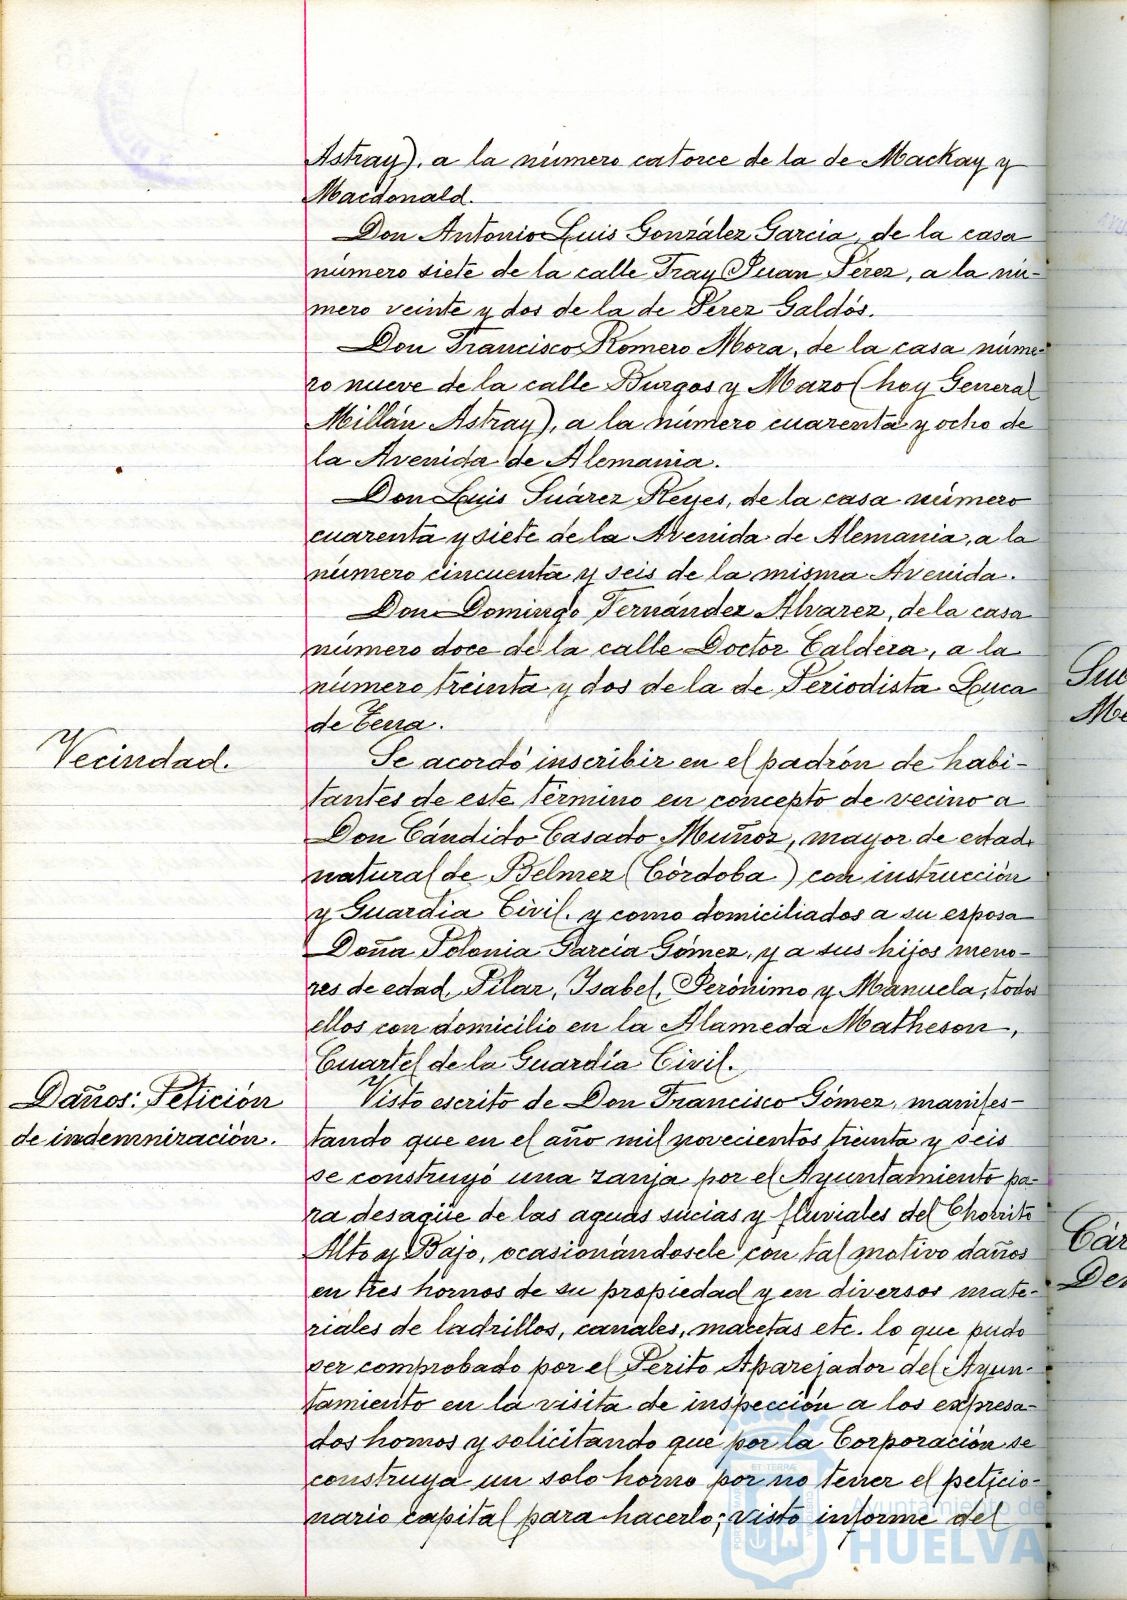 Astray), a la número catorce de la de Mackay y
Macdonald.
Don Antonio Luis González García, de la casa
número siete de la calle Fray Juan Pérez, a la nú-
mero veinte y dos de la de Pérez Galdós.
Don Francisco Romero Mora, de la casa núme-
ro nueve de la calle Burgos y Mazo (hoy General
Millán Astray), a la número cuarenta y ocho de
la Avenida de Alemania.
Don Luis Suárez Reyes, de la casa número
cuarenta y siete de la Avenida de Alemania, a la
número cincuenta y seis de la misma Avenida.
Don Domingo Fernández Alvarez, de la casa
número doce de la calle Doctor Caldera, a la
número treinta y dos de la de Periodista Luca
de Tena.
Vecindad.
Se acordó inscribir en el padrón de habi-
tantes de este término en concepto de vecino a
Don Cándido Casado Muñoz, mayor de edad,
natural de Belmez (Córdoba) con instrucción
y Guardia Civil. y como domiciliados a su esposa
Doña Polonia García Gómez, y a sus hijos meno-
res de edad Pilar, Isabel, Jerónimo y Manuela, todos
ellos con domicilio en la Alameda Matheson,
Cuartel de la Guardia Civil.
Daños: Petición
de indemnización.
Visto escrito de Don Francisco Gómez, manifes-
tando que en el año mil novecientos treinta y seis
se construyó una zanja por el Ayuntamiento pa-
ra desagüe de las aguas sucias y fluviales del Chorrito
Alto y Bajo, ocasionándosele con tal motivo daños
en tres hornos de su propiedad y en diversos mate-
riales de ladrillos, canales, macetas etc. lo que pudo
ser comprobado por el Perito Aparejador del Ayun-
tamiento en la visita de inspección a los expresa-
dos hornos y solicitando que por la Corporación se
construya un solo horno por no tener el peticio-
nario capital para hacerlo; visto informe del
Ayuntamiento de
HUELVA